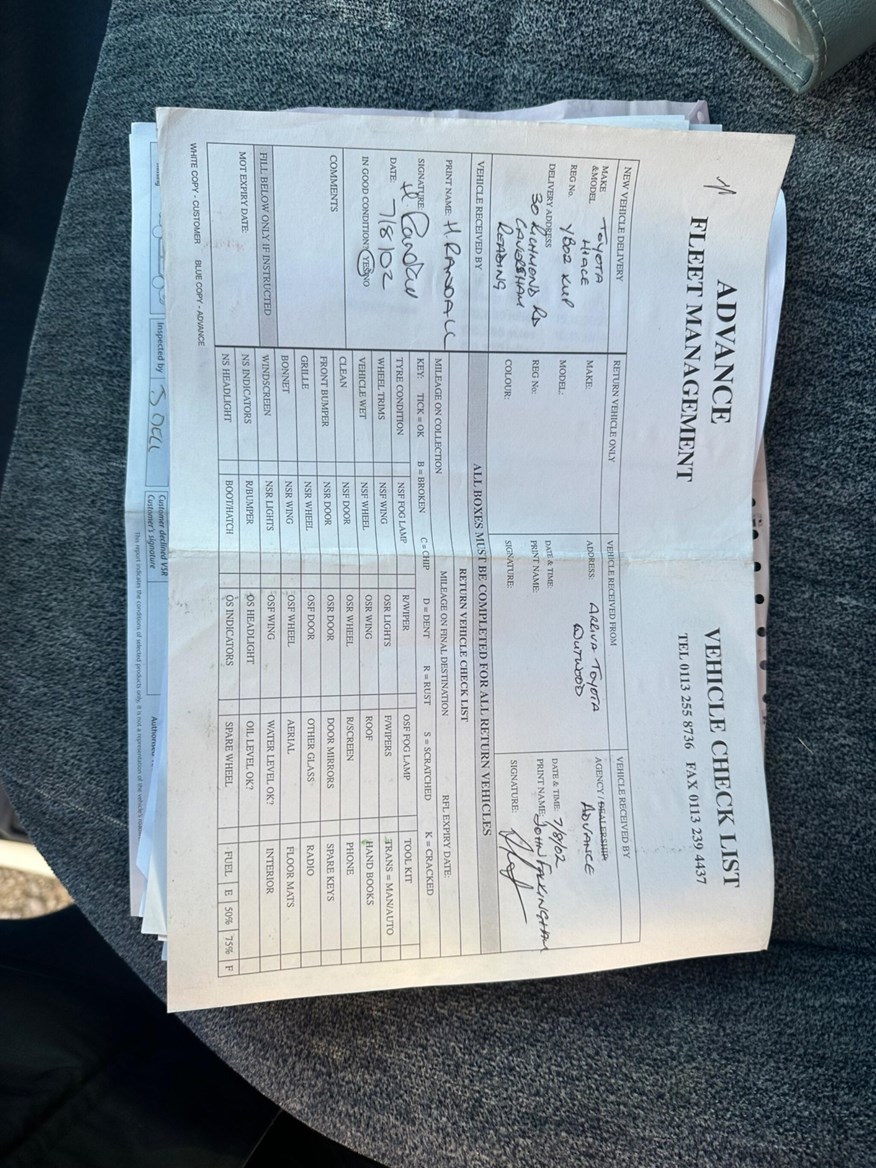 ADVANCE
FLEET MANAGEMENT
VEHICLE CHECK LIST
TEL 0113 255 8736 FAX 0113 239 4437
NEW VEHICLE DELIVERY
MAKE &MODEL TOYOTA HIACE
REG No. YB02 KUP
DELIVERY ADDRESS
30 RICHMOND RD
CAVERSHAM
READING
RETURN VEHICLE ONLY
MAKE:
MODEL:
REG No:
COLOUR:
VEHICLE RECEIVED FROM
ADDRESS: ARRIVA TOYOTA
OUTWOOD
DATE & TIME:
PRINT NAME:
SIGNATURE:
VEHICLE RECEIVED BY
AGENCY / DEALERSHIP
ADVANCE
DATE & TIME: 7/8/02
PRINT NAME: JOHN
SIGNATURE:
VEHICLE RECEIVED BY
PRINT NAME: H RANDALL
SIGNATURE: H. Randall
DATE: 7/8/02
IN GOOD CONDITION? YES/NO
COMMENTS
FILL BELOW ONLY IF INSTRUCTED
MOT EXPIRY DATE:
ALL BOXES MUST BE COMPLETED FOR ALL RETURN VEHICLES
RETURN VEHICLE CHECK LIST
MILEAGE ON COLLECTION MILEAGE ON FINAL DESTINATION RFL EXPIRY DATE:
KEY: TICK = OK B = BROKEN C = CHIP D = DENT R = RUST S = SCRATCHED K = CRACKED
TYRE CONDITION NSF FOG LAMP R/WIPER OSF FOG LAMP TOOL KIT
WHEEL TRIMS NSF WING OSR LIGHTS F/WIPERS TRANS = MAN/AUTO
VEHICLE WET NSF WHEEL OSR WING ROOF HAND BOOKS
CLEAN NSF DOOR OSR WHEEL R/SCREEN PHONE
FRONT BUMPER NSR DOOR OSR DOOR DOOR MIRRORS SPARE KEYS
GRILLE NSR WHEEL OSF DOOR OTHER GLASS RADIO
BONNET NSR WING OSF WHEEL AERIAL FLOOR MATS
WINDSCREEN NSR LIGHTS OSF WING WATER LEVEL OK? INTERIOR
NS INDICATORS R/BUMPER OS HEADLIGHT OIL LEVEL OK?
NS HEADLIGHT BOOT/HATCH OS INDICATORS SPARE WHEEL FUEL E 50% 75% F
WHITE COPY - CUSTOMER BLUE COPY - ADVANCE
Inspected by
Customer declined VSR
Customer's signature
This report indicates the conditions of selected products only, it is not a representation of the vehicle's